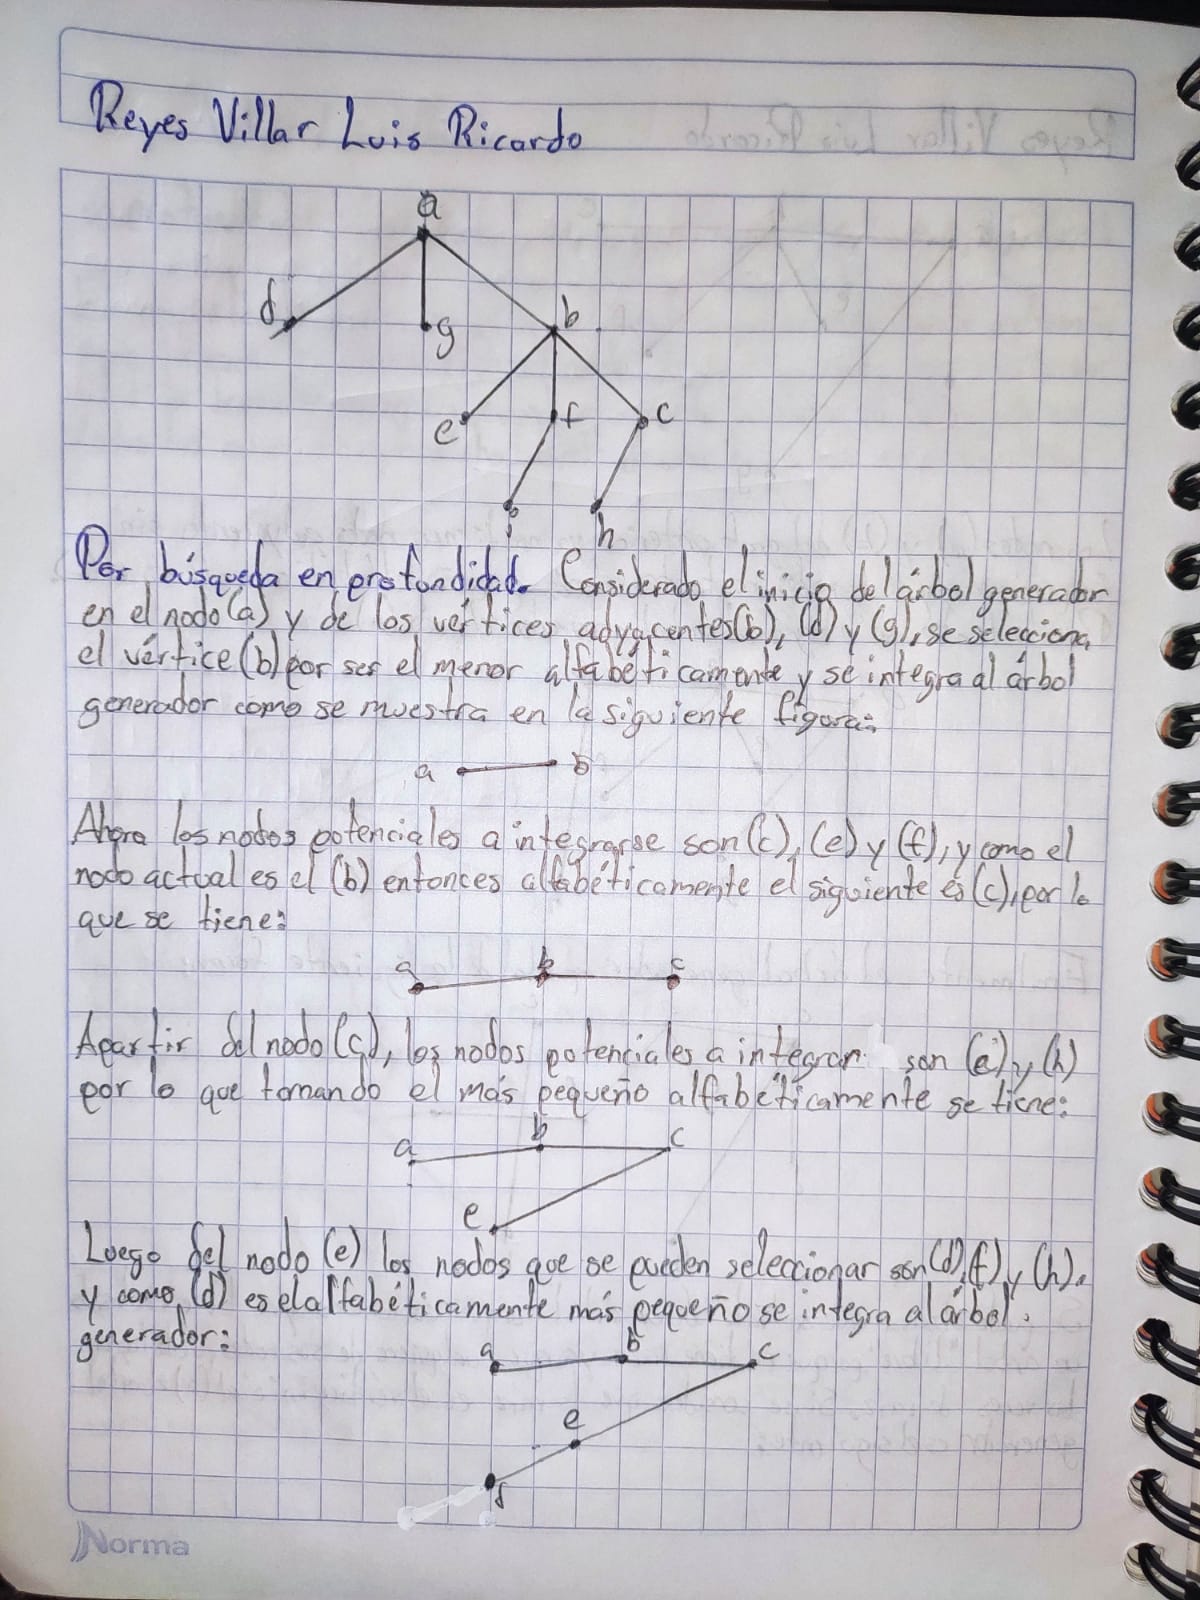 Reyes Villar Luis Ricardo
a
d
g
b
e
f
c
i
h
Por búsqueda en profundidad. Considerado el inicio del árbol generador
en el nodo (a) y de los vértices adyacentes (b), (d) y (g), se selecciona
el vértice (b) por ser el menor alfabéticamente y se integra al árbol
generador como se muestra en la siguiente figura:
a b
Ahora los nodos potenciales a integrarse son (c), (e) y (f), y como el
nodo actual es el (b) entonces alfabéticamente el siguiente es (c), por lo
que se tiene:
a b c
Apartir del nodo (c), los nodos potenciales a integrar son (e) y (h)
por lo que tomando el más pequeño alfabéticamente se tiene:
a b c
e
Luego del nodo (e) los nodos que se pueden seleccionar son (d), (f) y (h).
y como (d) es el alfabéticamente más pequeño se integra al árbol.
generador:
a b c
e
Norma